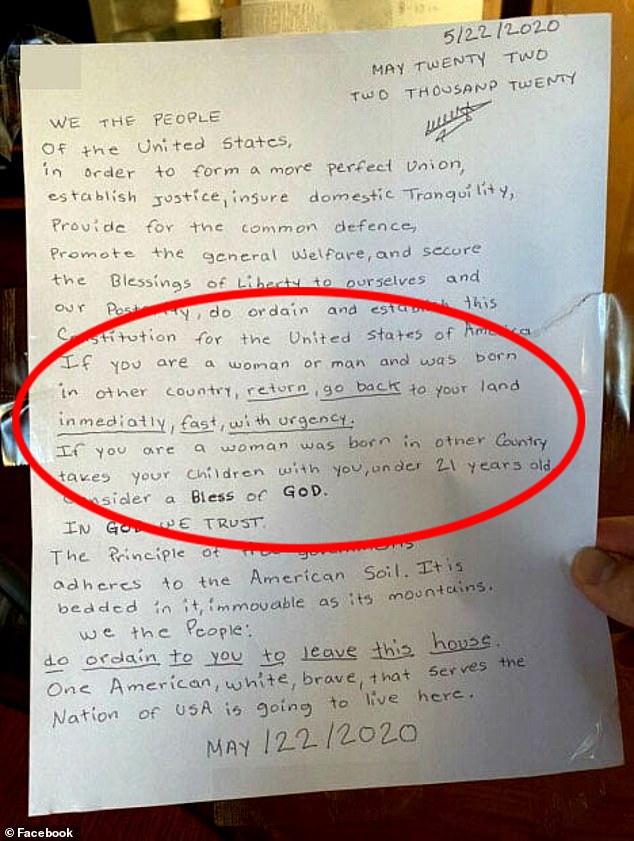 5/22/2020
MAY TWENTY TWO
TWO THOUSAND TWENTY
WE THE PEOPLE
Of the United States,
in order to form a more perfect Union,
establish Justice, insure domestic Tranquility,
Provide for the common defence,
Promote the general Welfare, and secure
the Blessings of Liberty to ourselves and
our Posterity, do ordain and establish this
Constitution for the United States of America
If you are a woman or man and was born
in other country, return, go back to your land
inmediatly, fast, with urgency.
If you are a woman was born in other Country
takes your children with you, under 21 years old
Consider a Bless of GOD.
IN GOD WE TRUST.
The Principle of free government
adheres to the American Soil. It is
bedded in it, immovable as its mountains.
we the People:
do ordain to you to leave this house.
One American, white, brave, that serves the
Nation of USA is going to live here.
MAY/22/2020
© Facebook